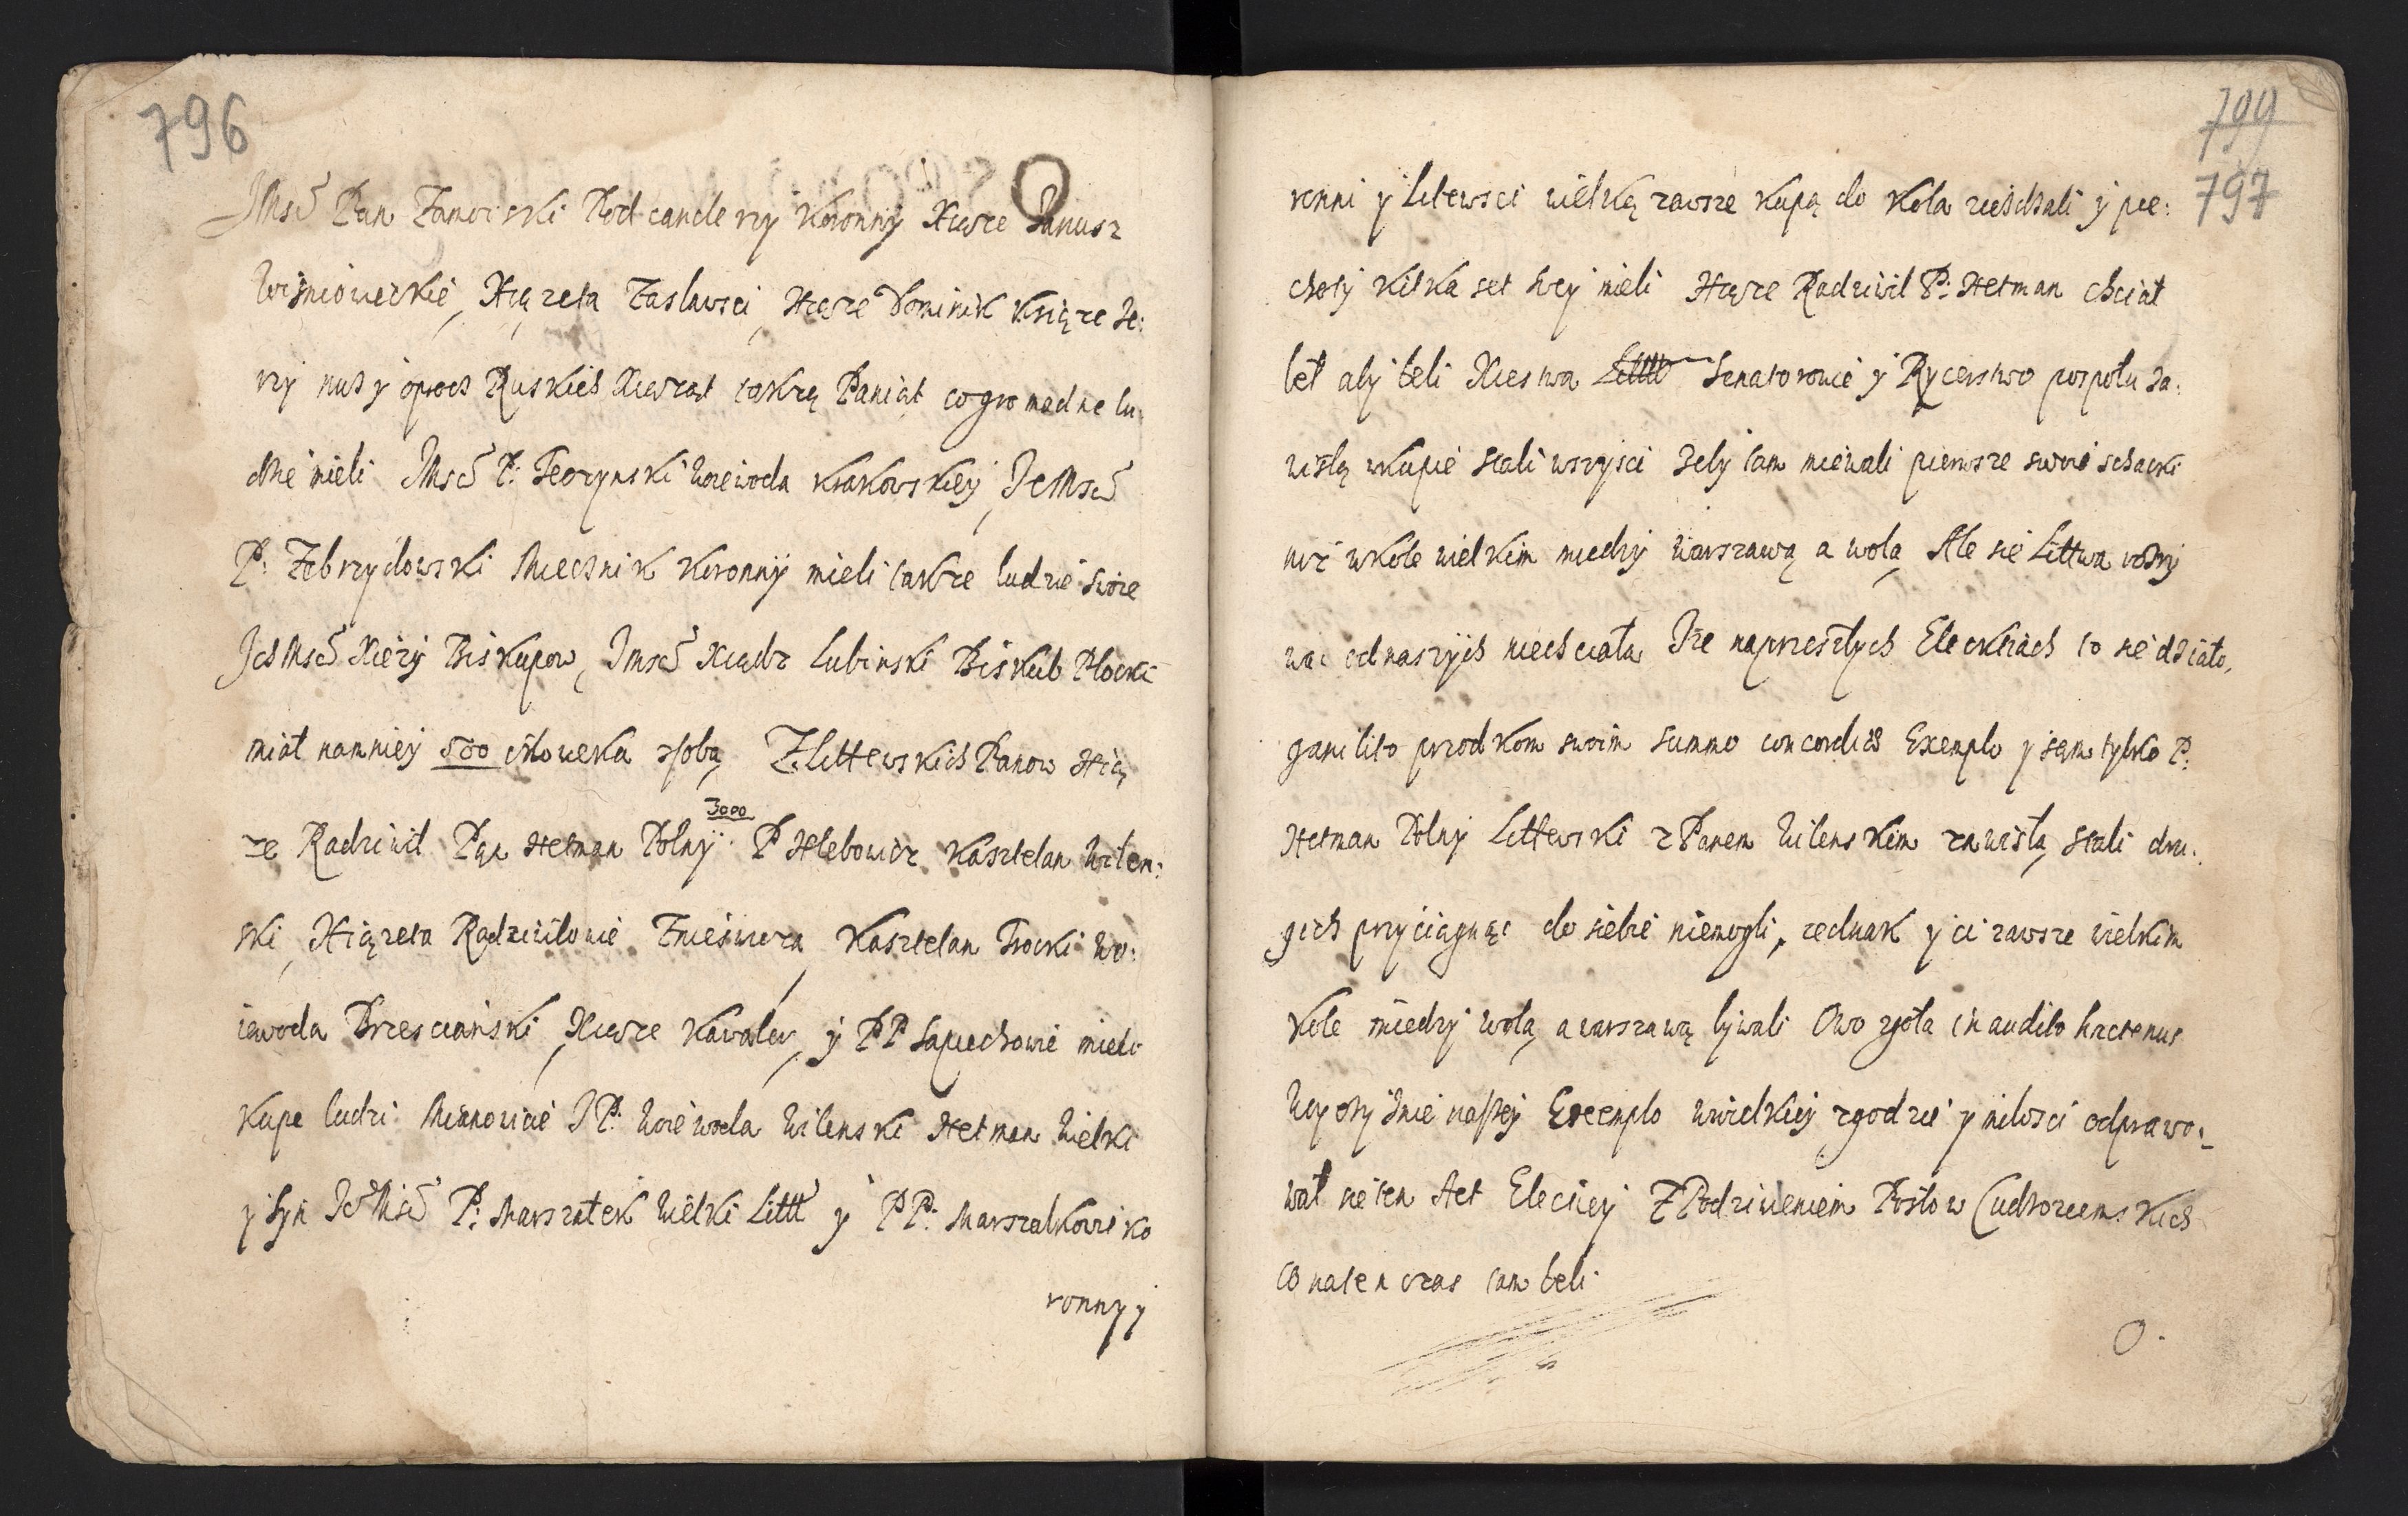 796
JMsć Pan Zamoiski Podcanclerzy Koronny Xiąże Janusz
Wisniowieckie, Xiążęta Zaslawsci, Xiąże Dominik Książe Je:
rzy nuż y oprocz Ruskich Xiążąt także Paniąt co gromadne lu
dzie mieli JMsć P: Teczynski Woiewoda Krakowskiey, JeMsć
P: Zebrzydowski Miecznik Koronny mieli także ludzie swoie
JchMsć Xięży Biskupow, Jmsć Xiądz Lubinski Biskub Płocki
miał namniey 500 człowieka zsobą, Z Littewskich Panow Xią
że Radziwił Pan Hetman Polny 3000 P Hlebowicz Kasztelan Wilen:
ski, Xiążeta Radziwilowie Znieswieza, Kasztelan Trocki Wo:
iewoda Brzescianski, Xiąże Kawaler, y PP Sapiechowie mieli
kupe ludzi Mianowicie JP: Woiewoda Wilenski Hetman Wielki
y Syn JeMsć P: Marszałek Wielki Littt y PP: Marszałkowie ko
ronny y
799
797
ronni y Litewsci wielką zawsze kupą do Koła zieżdżali y pie:
choty kilka set swey mieli Xiąże Radziwil P: Hetman chciał
beł aby beli Xiestwa Littt Senatorowie y Rycerstwo pospołu za:
wisłą wkupie stali wszysci żeby tam miewali pierwsze swoie schacki
niż wkole wielkim miedzy Warszawą a wolą, Ale sie Littwa rożny
wac od naszych niechciała Jże naprzeszłych Elekciach to sie działo,
ganili to przodkom swoim summo concordies Exemplo y sam tylko P:
Hetman Polny Littewski z Panem Wilenskim zawisłą stali dru:
gich przyciągnąc do siebie niemogli, iednak y ci zawsze wielkim
kole miedzy wolą a warszawą bywali Owo zgoła inaudito hactenus
Woyczyznie naszey Exemplo wwielkiey zgodzie y milosci odprawo:
wał sie ten Act Elecyey Z Podziwieniem Posłow Cudzoziemskich
co natenczas tam beli